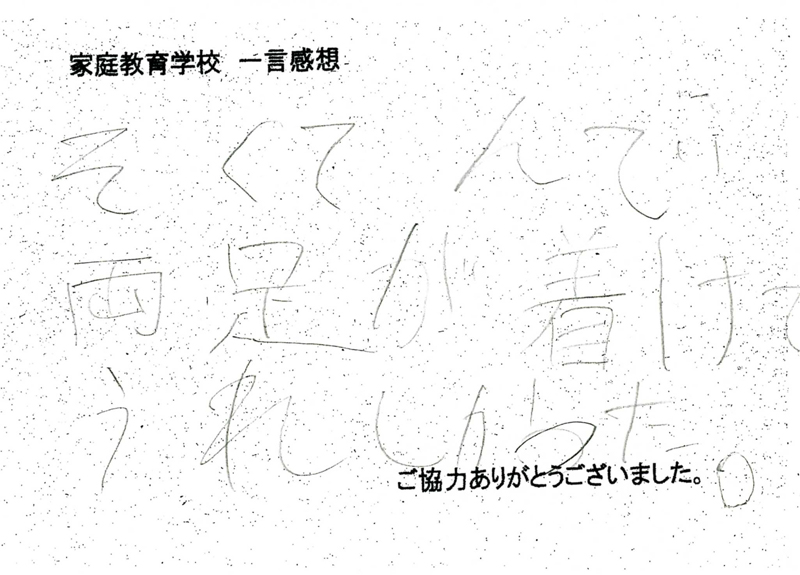 家庭教育学校 一言感想
そくてんで
両足が着けて
うれしかった。
ご協力ありがとうございました。